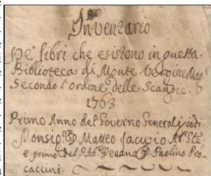 Inventario
De' libri che esistono in questa
Biblioteca di Monte
Secondo l'ordine delle Scanzie
1763
Primo Anno del Governo Generalizio di
Monsig.r Matteo
e primo del P. Ab.e Paolino
caccini